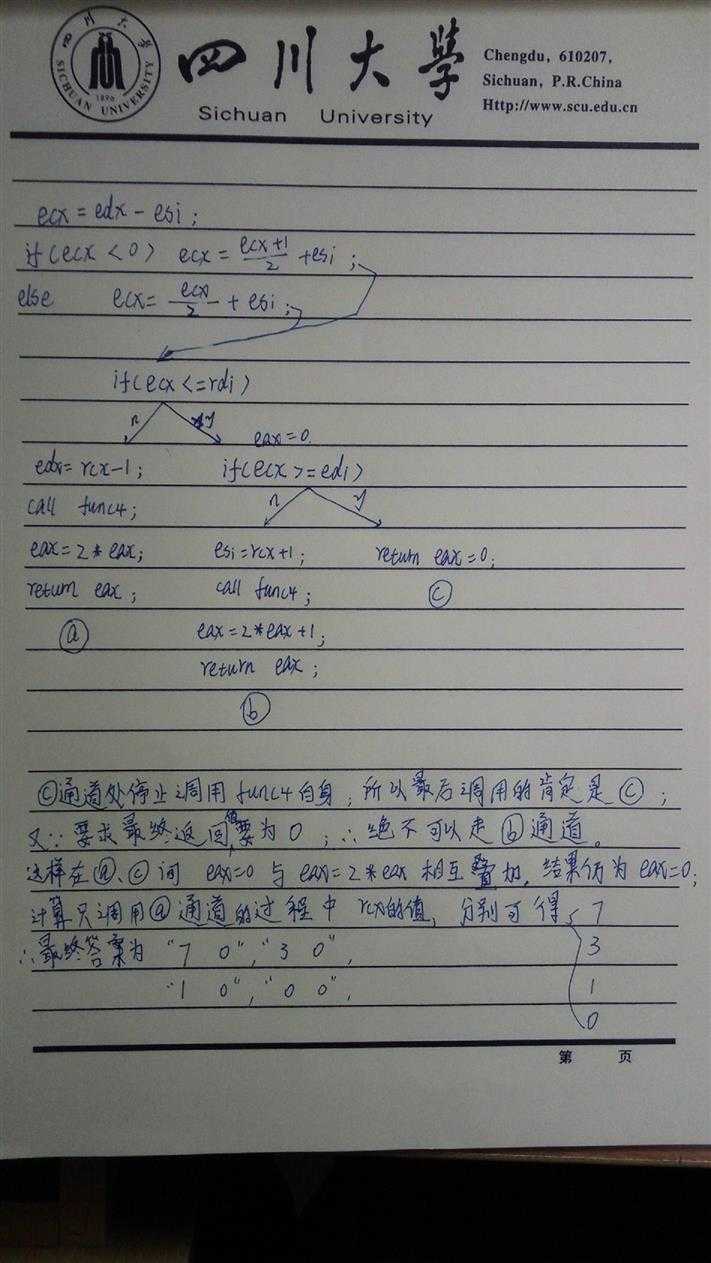 四川大学
SICHUAN UNIVERSITY
1896
四川大學
Sichuan University
Chengdu, 610207,
Sichuan, P.R.China
Http://www.scu.edu.cn
ecx = edx - esi ;
if (ecx < 0) ecx = (ecx+1)/2 + esi ;
else ecx = ecx/2 + esi ;
if (ecx <= rdi)
n y
eax = 0.
edx = rcx-1 ; if (ecx >= edi)
call func4 ; n y
eax = 2 * eax ; esi = rcx+1 ; return eax = 0 ;
return eax ; call func4 ; ⓒ
ⓐ eax = 2*eax+1 ;
return eax ;
ⓑ
ⓒ通道处停止调用 func4 自身，所以最后调用的肯定是 ⓒ ；
又∵ 要求最终返回值要为 0 ；∴ 绝不可以走 ⓑ 通道。
这样在 ⓐ、ⓒ 间 eax=0 与 eax=2*eax 相互叠加，结果仍为 eax=0；
计算只调用 ⓐ 通道的过程中 rcx的值，分别可得 7
∴最终答案为 "7 0", "3 0", 3
"1 0", "0 0", 1
0
第 页